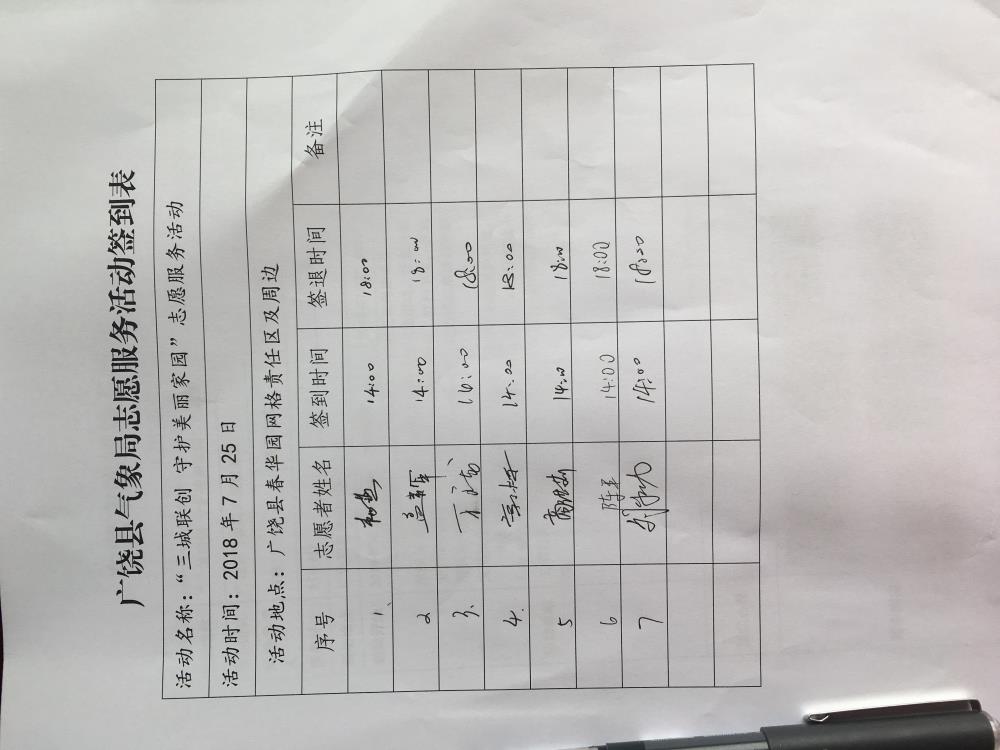 广饶县气象局志愿服务活动签到表
活动名称：“三城联创 守护美丽家园”志愿服务活动
活动时间：2018年7月25日
活动地点：广饶县春华园网格责任区及周边
序号 志愿者姓名 签到时间 签退时间 备注
1、 14:00 18:00
2 14:00 18:00
3、 14:00 18:00
4. 14:00 18:00
5 14:00 18:00
6 14:00 18:00
7 14:00 18:00